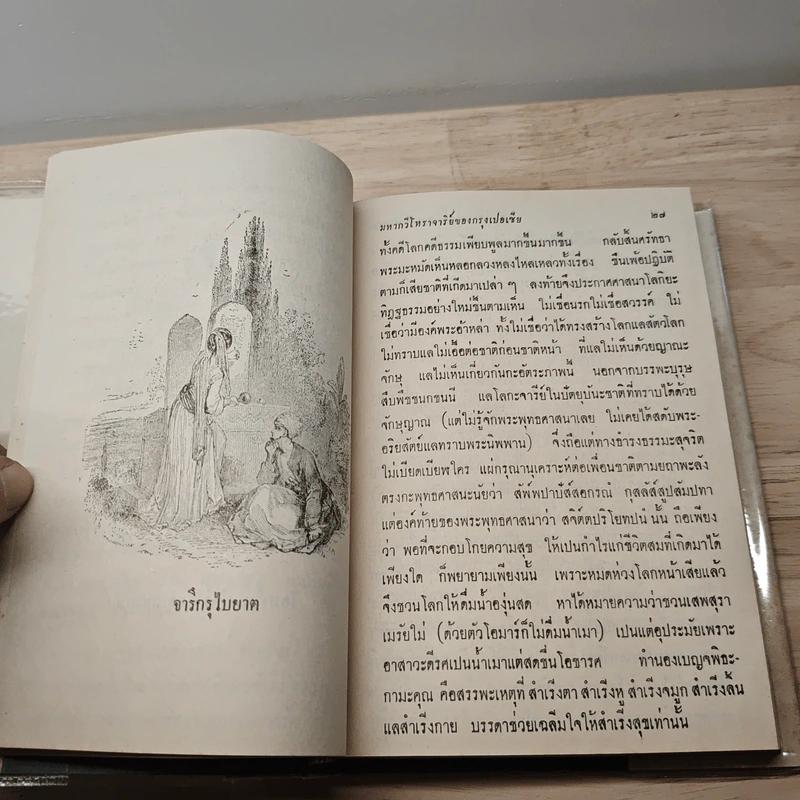 จาริกรุไบยาต
มหากวีโหราจารีย์ของกรุงเปอเซีย ๒๗
ทั้งคดีโลกคดีธรรมเพียบพูลมากขึ้นมากขึ้น กลับสิ้นศรัทธา
พระมะหมัดเห็นหลอกลวงหลงไหลเหลวทั้งเรื่อง ขืนเพ้อปฏิบัติ
ตามก็เสียชาติที่เกิดมาเปล่า ๆ ลงท้ายจึงประกาศศาสนาโลกิยะ
ทิฏฐธรรมอย่างใหม่ขึ้นตามเห็น ไม่เชื่อนรกไม่เชื่อสวรรค์ ไม่
เชื่อว่ามีองค์พระอ้าหล่า ทั้งไม่เชื่อว่าได้ทรงสร้างโลกแลสัตวโลก
ไม่ทราบแลไม่เอื้อต่อชาติก่อนชาติหน้า ที่แลไม่เห็นด้วยญาณะ
จักษุ แลไม่เห็นเกี่ยวกันกะอัตระภาพนี้ นอกจากบรรพะบุรุษ
สืบพืชชนกชนนี แลโลกะจารีย์ในปัตยุบันะชาติที่ทราบได้ด้วย
จักษุญาณ (แต่ไม่รู้จักพระพุทธศาสนาเลย ไม่เคยได้สดับพระ-
อริยสัตย์แลทราบพระนิพพาน) จึ่งถือแต่ทางธำรงธรรมะสุจริต
ไม่เบียดเบียฬใคร แผ่กรุณานุเคราะห์ต่อเพื่อนชาติตามยถาพะลัง
ตรงกะพุทธศาสนะนัยว่า สัพ์พปาปัส์สอกรณํ กุสลัส์สูปสัมปทา
แต่องค์ท้ายของพระพุทธศาสนาว่า สจิต์ตปริโยทปนํ นั้น ถือเพียง
ว่า พอที่จะกอบโกยความสุข ให้เปนกำไรแก่ชีวิตสมที่เกิดมาได้
เพียงใด ก็พยายามเพียงนั้น เพราะหมดห่วงโลกหน้าเสียแล้ว
จึงชวนโลกให้ดื่มน้ำองุ่นสด หาได้หมายความว่าชวนเสพสุรา
เมรัยไม่ (ด้วยตัวโอมาร์ก็ไม่ดื่มน้ำเมา) เปนแต่อุประมัยเพราะ
อาสาวะดีรศเปนน้ำเมาแต่สดชื่นโอชารศ ทำนองเบญจพิธะ-
กามะคุณ คือสรรพะเหตุที่ สำเริงตา สำเริงหู สำเริงจมูก สำเริงลิ้น
แลสำเริงกาย บรรดาช่วยเฉลิมใจให้สำเริงสุขเท่านั้น